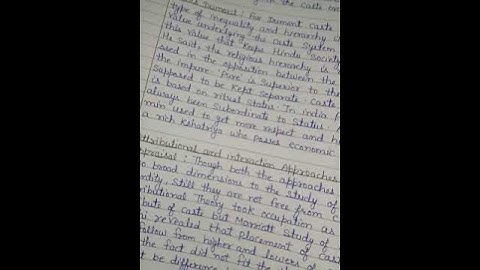 in the caste
Dumont : For Dumont caste
type of inequality and hierarchy
value underlying the caste system
this value that keeps Hindu Society
He said, the religious hierarchy is
ssed in the opposition between the
the impure. 'Pure' is Superior to the
Sapposed to be kept separate. Caste
is based on ritual status. In india
always been Subordinate to Status.
min used to get more respect and
a rich Kshatriya who posses economic
ttributional and interaction Approaches
ppraisal : Though both the approaches
o broad dimensions to the study of
ntity, still they are not free from
ributional Theory took occupation as
bute of caste but Marriott Study of
revealed that placement of cast
follow from higher and lowers of
the fact did not fit the
t be difference